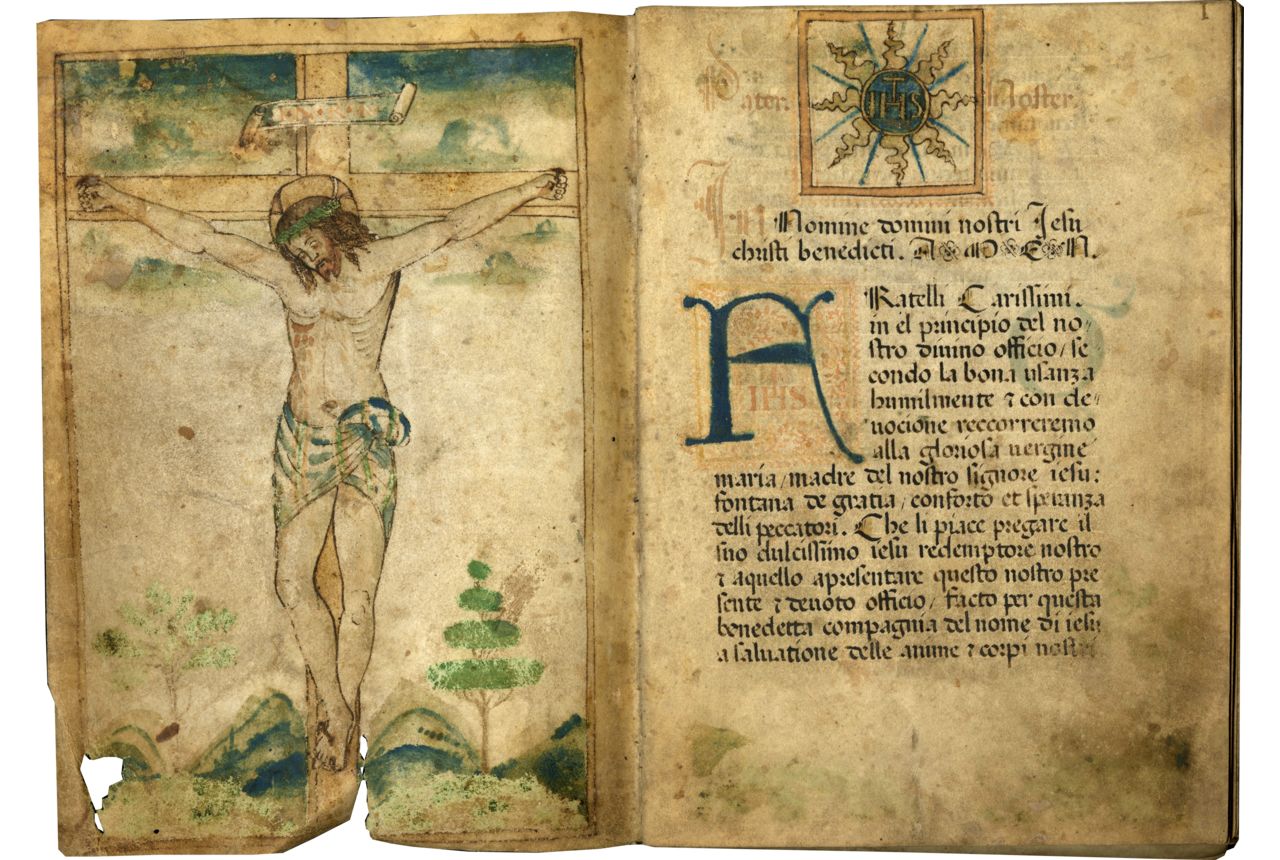 1
IHS
Nomine domini nostri Jesu
christi benedicti. AMEN.
FRatelli Carissimi.
in el principio del no⸗
stro diuino officio/ se
condo la bona usanza
humilmente ⁊ con de⸗
uocione reccorreremo
alla gloriosa uergine
maria/ madre del nostro signore iesu:
fontana de gratia/ conforto et speranza
delli peccatori. Che li piace pregare il
suo dulcissimo iesu redemptore nostro
⁊ aquello apresentare questo nostro pre
sente ⁊ deuoto officio/ facto per questa
benedetta compagnia del nome di iesu
a saluatione delle anime ⁊ corpi nostri